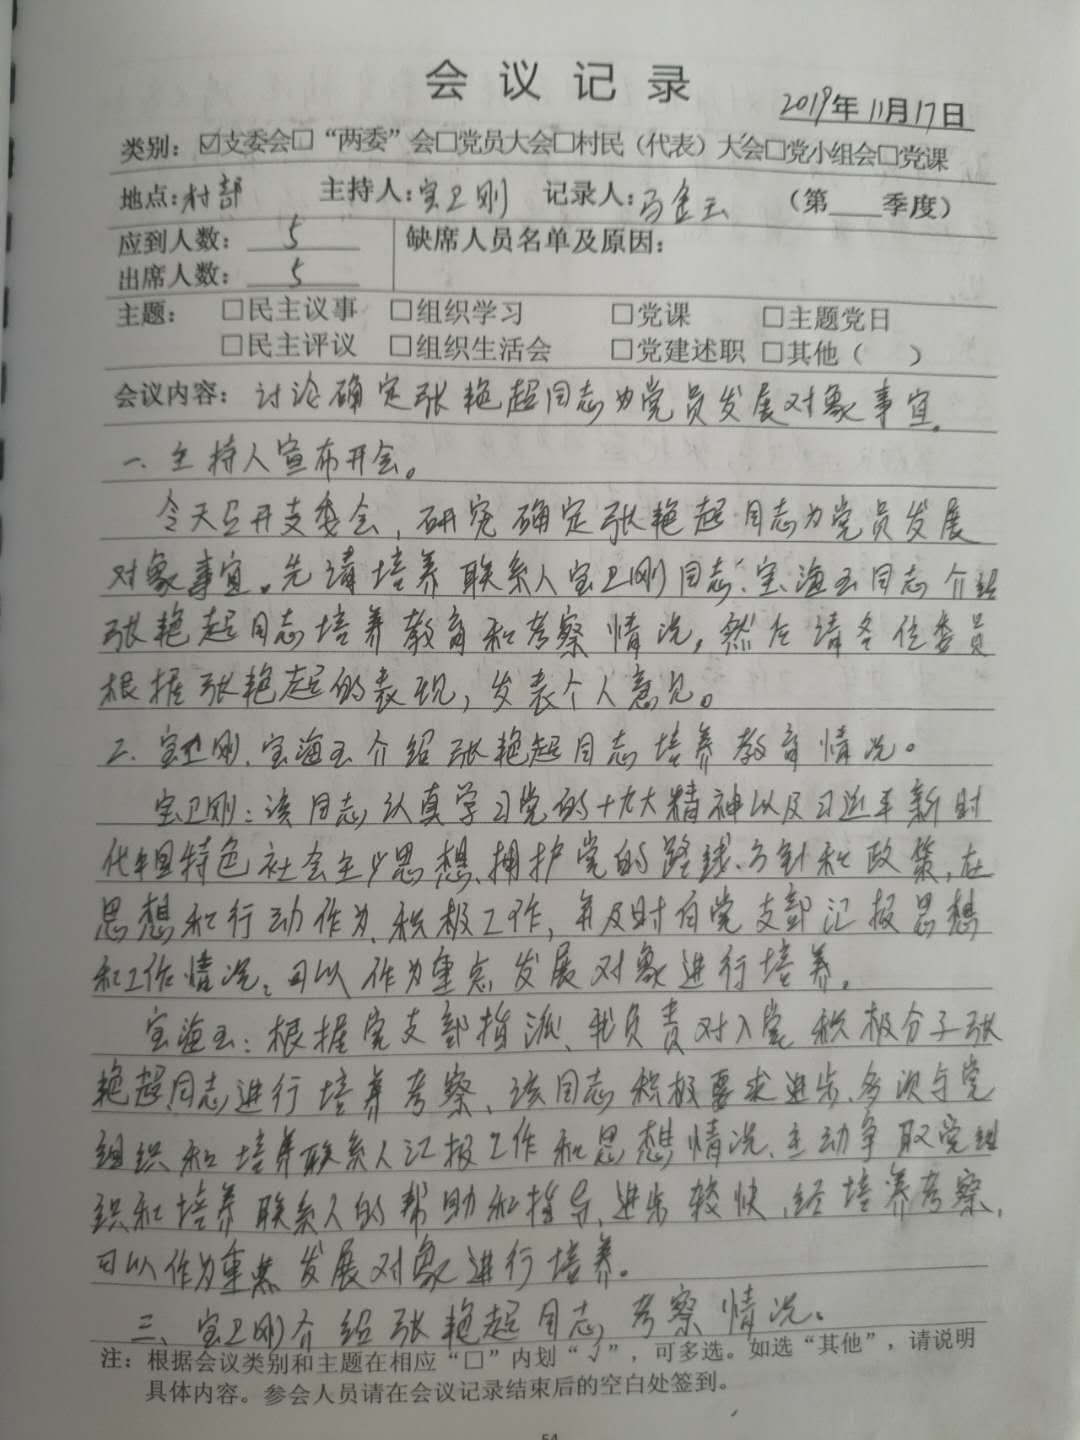 会议记录
2019年11月17日
类别：☑支委会□“两委”会□党员大会□村民（代表）大会□党小组会□党课
地点：村部 主持人：宝卫刚 记录人：马金玉 （第___季度）
应到人数：5 缺席人员名单及原因：
出席人数：5
主题： □民主议事 □组织学习 □党课 □主题党日
□民主评议 □组织生活会 □党建述职 □其他（ ）
会议内容：讨论确定张艳超同志为党员发展对象事宜。
一、主持人宣布开会。
今天召开支委会，研究确定张艳超同志为党员发展
对象事宜。先请培养联系人宝卫刚同志、宝海玉同志介绍
张艳超同志培养教育和考察情况，然后请各位委员
根据张艳超的表现，发表个人意见。
二、宝卫刚、宝海玉介绍张艳超同志培养教育情况。
宝卫刚：该同志认真学习党的十九大精神以及习近平新时
代中国特色社会主义思想、拥护党的路线、方针和政策，在
思想和行动作为、积极工作，并及时向党支部汇报思想
和工作情况。可以作为重点发展对象进行培养。
宝海玉：根据党支部指派、我负责对入党积极分子张
艳超同志进行培养考察、该同志积极要求进步、多次与党
组织和培养联系人汇报工作和思想情况、主动争取党组
织和培养联系人的帮助和指导、进步较快、经培养考察，
可以作为重点发展对象进行培养。
三、宝卫刚介绍张艳超同志考察情况。
注：根据会议类别和主题在相应“□”内划“√”，可多选。如选“其他”，请说明
具体内容。参会人员请在会议记录结束后的空白处签到。
54